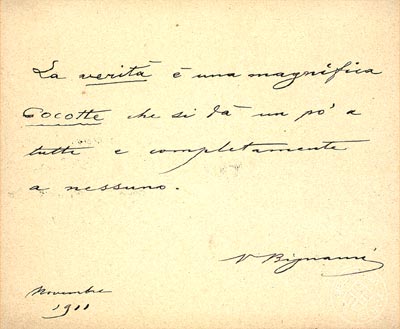 La verità è una magnifica
Cocotte che si dà un pò a
tutti e completamente
a nessuno.
V Bignami
Novembre
1911